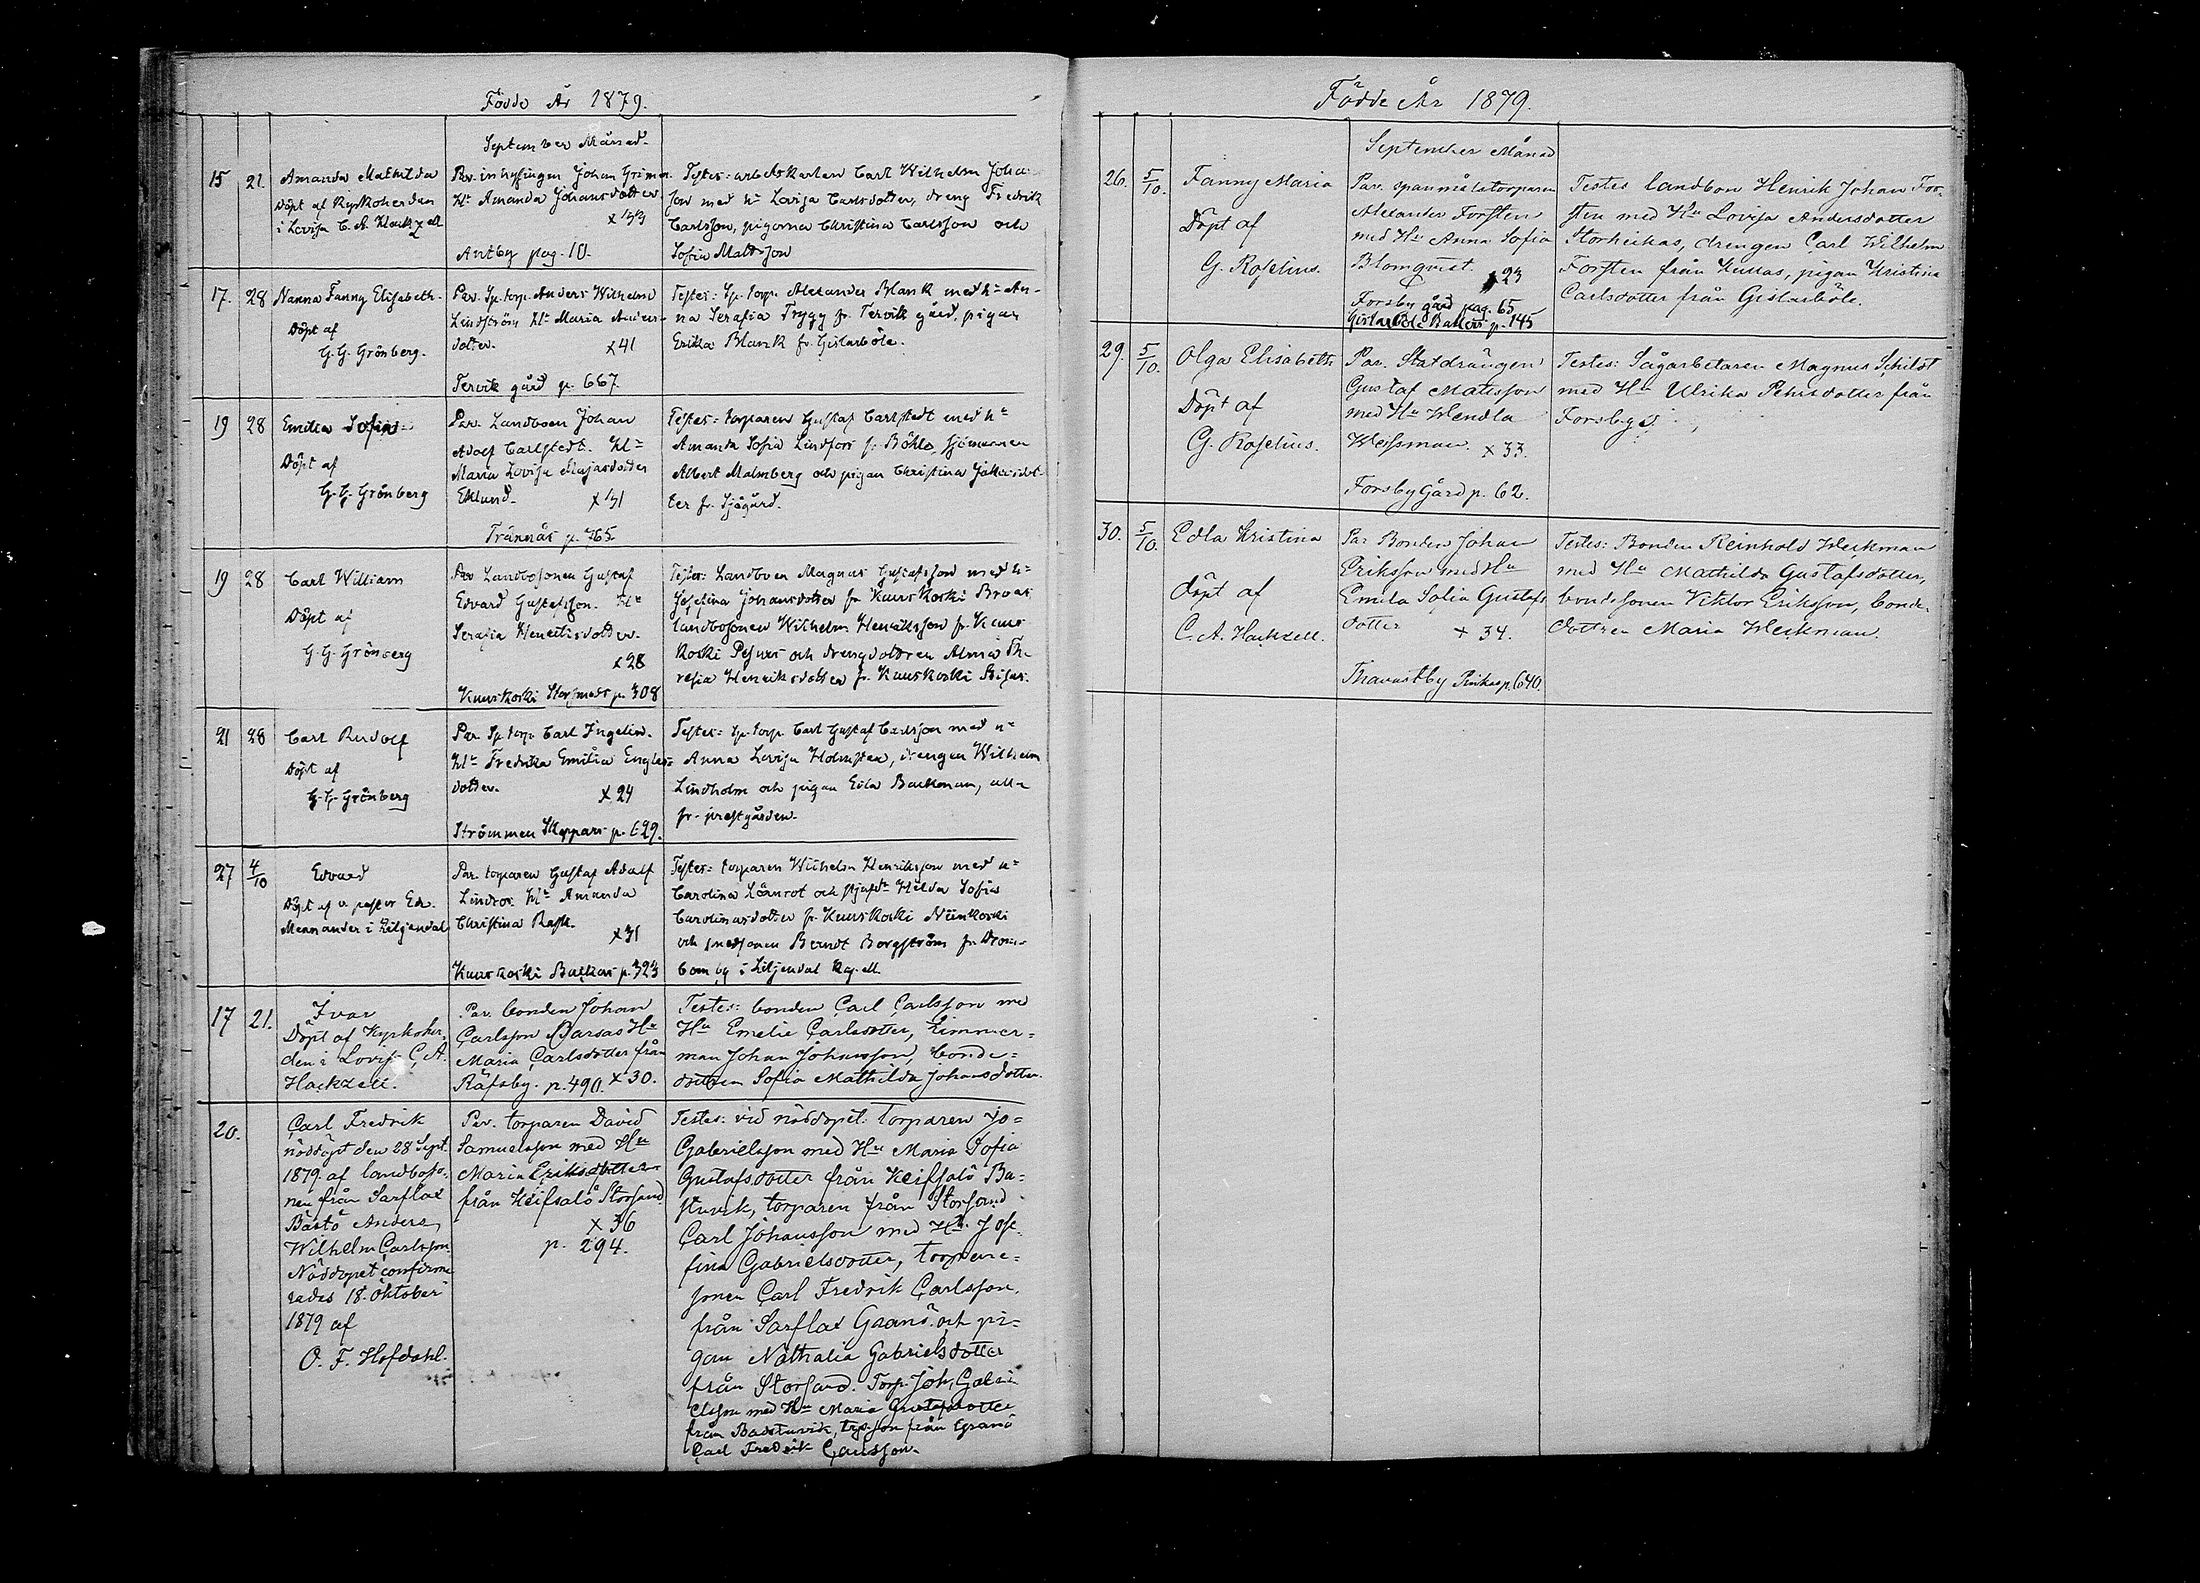 Födde År 1879.
September Månad.
15 21. Amanda Mathilda
Döpt af Kyrkoherden
i Lovisa C. A. Hackzell
Par. inhysingen Johan Grimm
Hu Amanda Johansdotter
x 33
Antby pag. 10.
Testes: arbetskarlen Carl Wilhelm Johans-
son med hu Lovisa Carlsdotter, dreng Fredrik
Carlsson, pigorna Christina Carlsson och
Sofia Mattsson
17. 28 Nanna Fanny Elisabeth.
Döpt af
G. G. Grönberg.
Par. Sp. torp. Anders Wilhelm
Lindström Hu Maria Anders-
dotter. x 41
Tervik gård p. 667.
Testes: Sp. torp. Alexander Blank med hu An-
na Serafia Trygg fr. Tervik gård, pigan
Erika Blank fr. Gislarböle.
19 28 Emilia Sofia
Döpt af
G. G. Grönberg
Par. Landboen Johan
Adolf Carlstedt. Hu
Maria Lovisa
Eklund. x 31
Trännäs p. 765.
Testes: torparen Gustaf Carlstedt med hu
Amanda Sofia Lindfors fr.Böhle, sjömannen
Albert Malmberg och pigan Christina
ter fr. Sjögård.
19 28 Carl William
Döpt af
G. G. Grönberg
Par Landbosonen Gustaf
Edvard Gustafsson. Hu
Serafia Henriksdotter.
x 28
Kuuskoski Storsmeds p. 308
Testes: Landboen Magnus Gustafsson med hu
Josefina Johansdotter fr Kuuskoski Broas
landbosonen Wilhelm Henriksson fr. Kuus
koski Pesurs och drengdottren Alma Th-
resia Henriksdotter fr. Kuuskoski
21 28 Carl Rudolf
Döpt af
G. G. Grönberg
Par. Sp. torp. Carl Ingelin.
Hu Fredrika Emilia Englas-
dotter. x 24
Strömmen Skeppars p. 629.
Testes: Sp. torp. Carl Gustaf Carlsson med hu
Anna Lovisa Holmsten, drengen Wilhelm
Lindholm och pigan Eda Backman, alla
fr. prestgården.
27 4/10 Edvard
Döpt af v. pastor Edv.
Mennander i Liljendal
Par. torparen Gustaf Adolf
Lindros Hu Amanda
Christina Rask.
x 31
Kuuskoski Backas p. 323
Testes: torparen Wilhelm Henriksson med hu
Carolina Lönnrot och Hilda Sofia
Carolinasdotter fr. Kuuskoski Niinkoski
och smedsonen Berndt Borgström fr. Drom-
bom by i Liljendal Kapell.
17 21. Ivar
Döpt af Kyrkoher-
den i Lovisa C. A.
Hackzell.
Par. bonden Johan
Carlsson Barsas Hu
Maria Carlsdotter från
Räfsby. p. 490. x 30.
Testes: bonden Carl Carlsson med
Hu Emelie Carlsdotter, timmer-
man Johan Johansson, bonde-
dottren Sofia Mathilda Johansdotter.
20. Carl Fredrik
nöddöpt den 28 Sept.
1879 af landboso-
nen från Sarflax
Bästö Anders
Wilhelm Carlsson.
Nöddopet confirme-
rades 18. oktober
1879 af
O. F. Hofdahl.
Par. torparen David
Samuelsson med Hu
Maria Eriksdotter
från Keifsalö Storsand
x 36
p. 294.
Testes: vid nöddopet: torparen Jo-
Gabrielsson med Hu Maria Sofia
Gustafsdotter från Keifsalö Ba-
stuvik, torparen från Storsand
Carl Johansson med Hu Jose-
fina Gabrielsdotter, torpare-
sonen Carl Fredrik Carlsson,
från Sarflax Granö och pi-
gan Nathalia Gabrielsdotter
från Storsand. Torp. Joh. Gabri
elsson med Hu Maria Gustafsdotter
från Bastuvik, torp. son från Granö
Carl Fredrik Carlsson.
Födde År 1879.
September Månad
26. 5/10. Fanny Maria
Döpt af
G. Roselius.
Par. spanmålstorparen
Alexander Forsten
med Hu Anna Sofia
Blomqvist. x 23
Forsby gård pag. 65
Gislarböle Backas p. 145
Testes landbon Henrik Johan For-
sten med Hu Lovisa Andersdotter
Storheikas, drengen Carl Wilhelm
Forsten från Kullas, pigan Kristina
Carlsdotter från Gislarböle.
29. 5/10. Olga Elisabeth
Döpt af
G. Roselius.
Par. Statdrängen
Gustaf Matsson
med Hu Wendla
Weissman. x 33.
Forsby Gård p. 62.
Testes: Sågarbetaren Magnus Schildt
med Hu Ulrika Pehrsdotter från
Forsby g.
30. 5/10. Edla Kristina
döpt af
C. A. Hackzell.
Par Bonden Johan
Eriksson med Hu
Emila Sofia Gustafs
dotter x 34.
Thavastby Pinkas p. 640.
Testes: Bonden Reinhold Weckman
med Hu Mathilda Gustafsdotter,
bondesonen Viktor Eriksson, bonde-
dottren Maria Weckman.